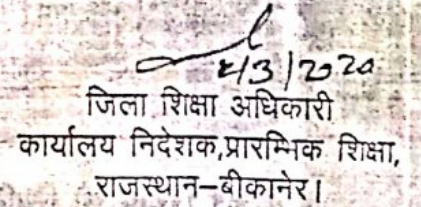 2/3/2020
जिला शिक्षा अधिकारी
कार्यालय निदेशक,प्रारम्भिक शिक्षा,
राजस्थान–बीकानेर।